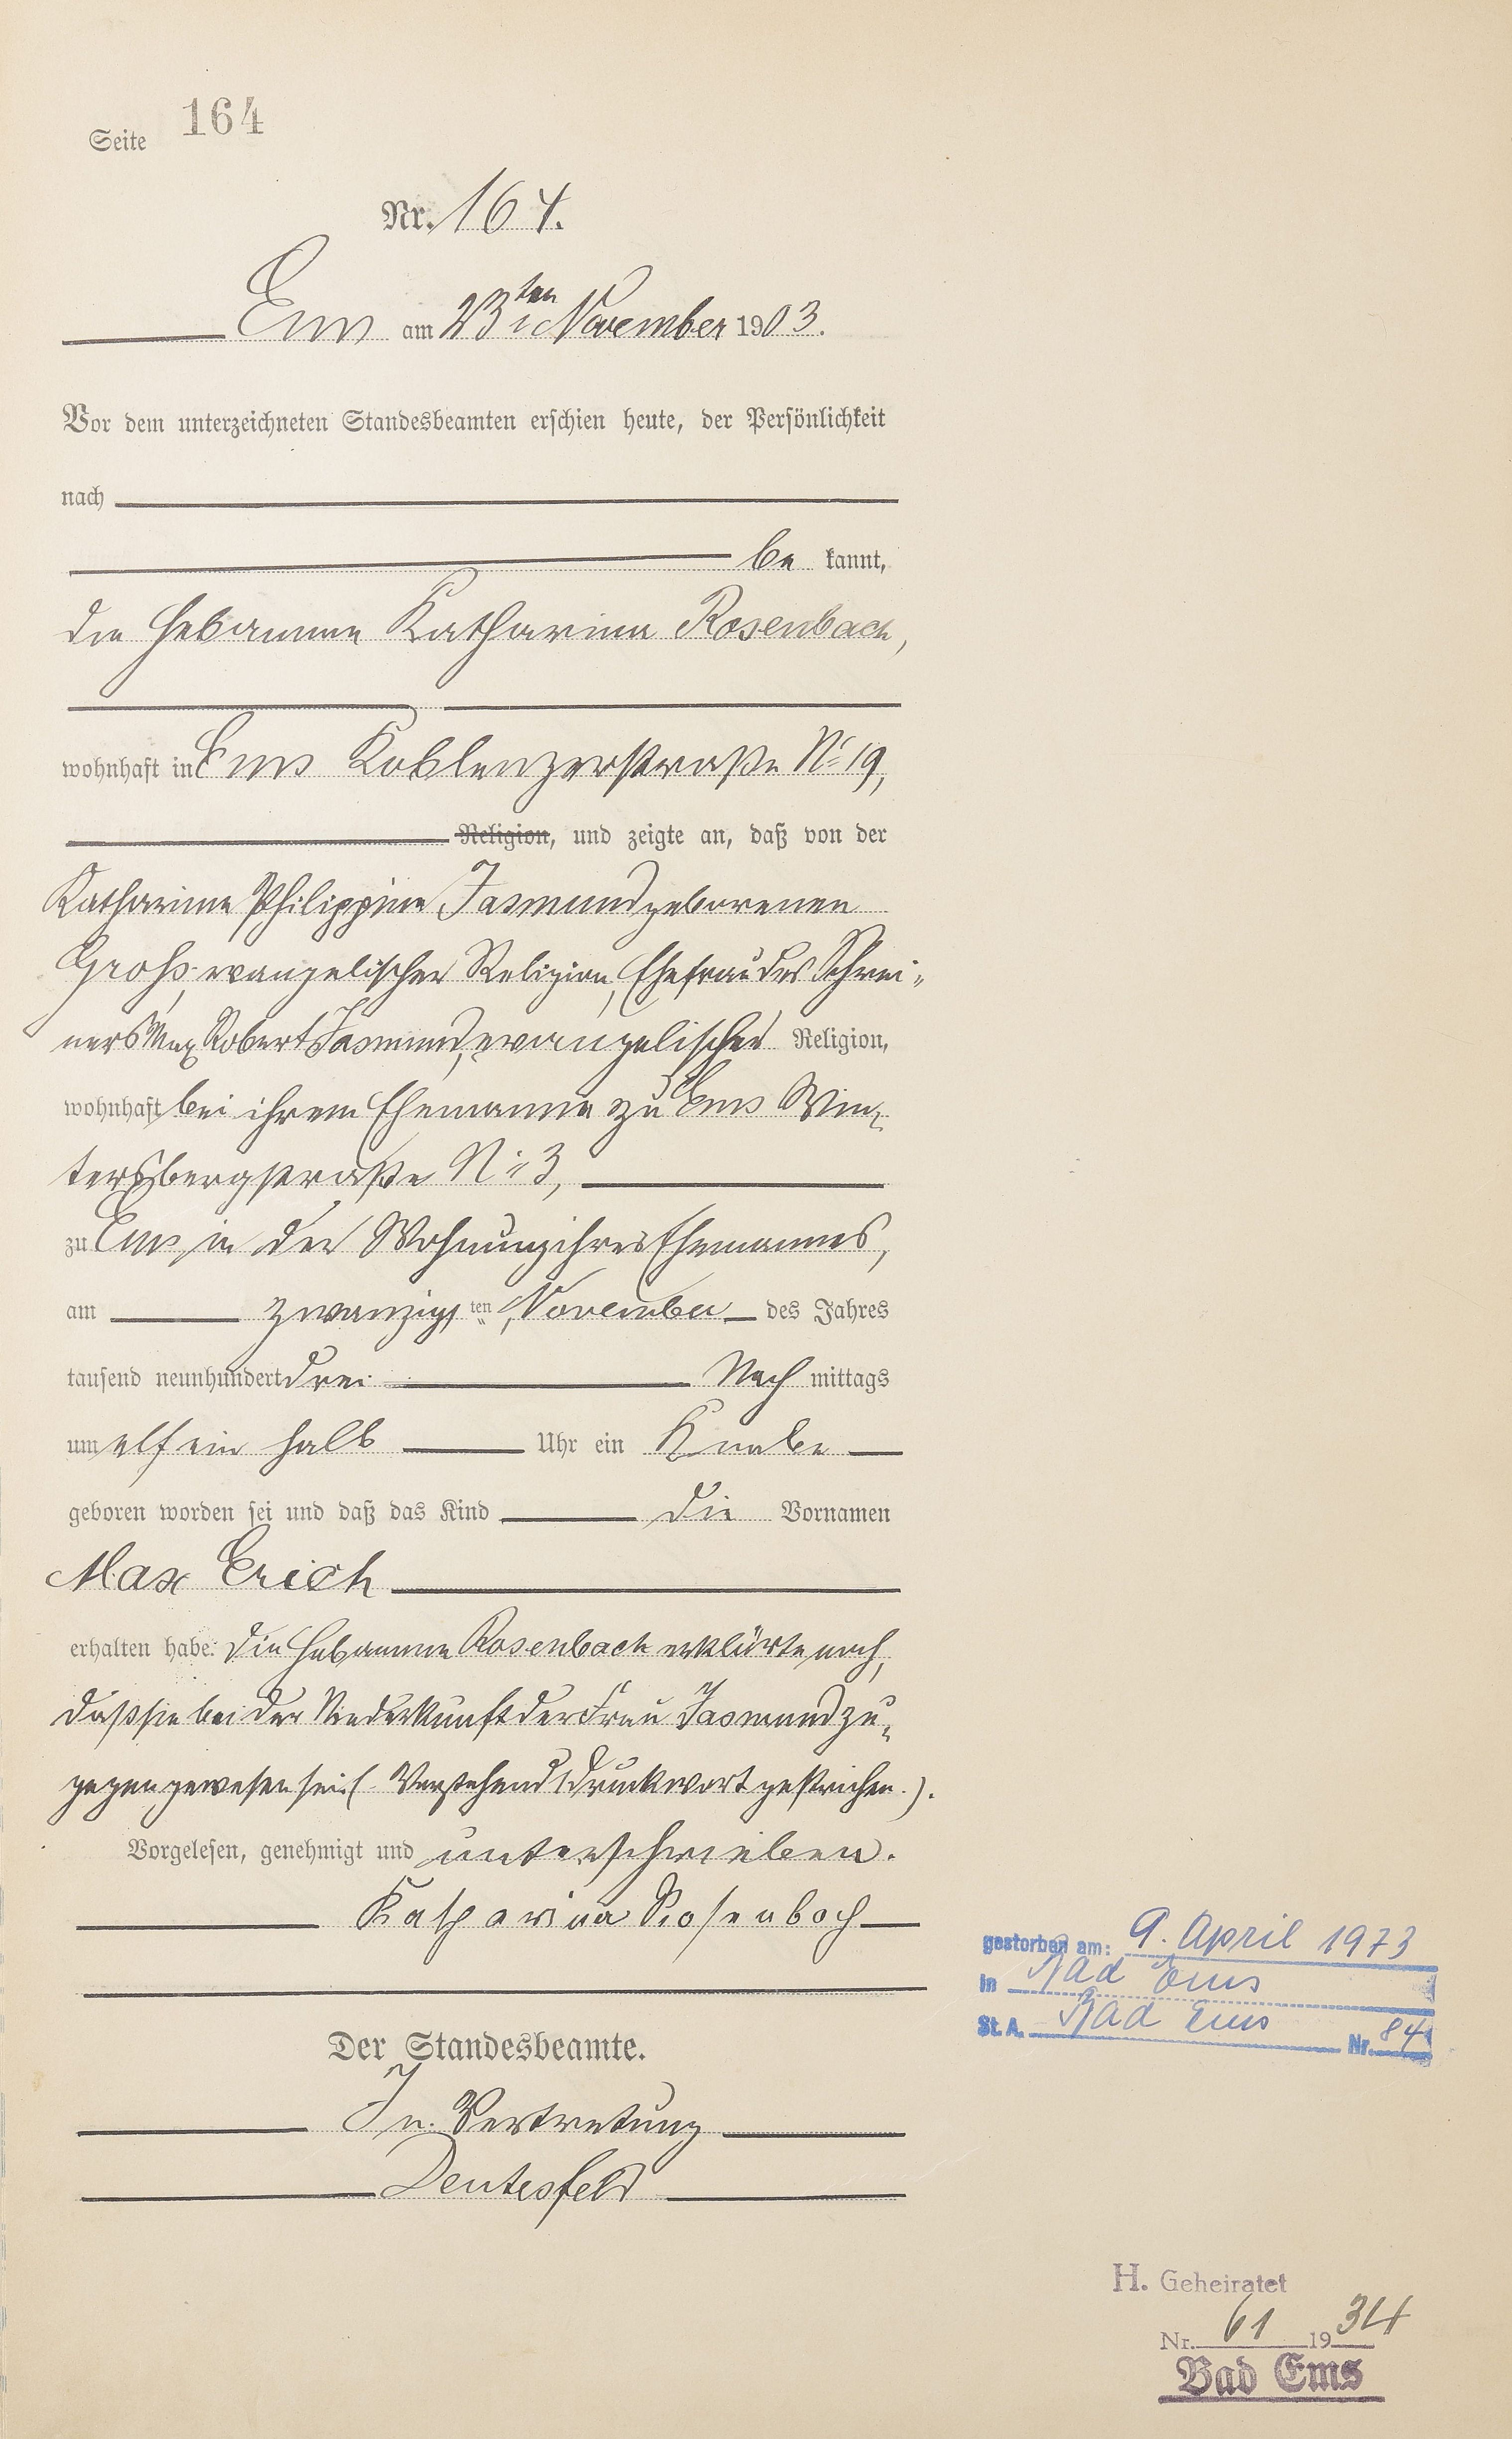 Seite 164
Nr. 164.
Ems am 23ten November 1903.
Vor dem unterzeichneten Standesbeamten erschien heute, der Persönlichkeit
nach
be kannt,
die Hebamme Katharina Rosenbach,
wohnhaft in Ems Koblenzerstraße No 19,
Religion, und zeigte an, daß von der
Katharina Philippine Jasmund geborenen
Groß, evangelischer Religion, Ehefrau des Schrei-
ners Max Robert Jasmund, evangelischer Religion,
wohnhaft bei ihrem Ehemanne zu Ems Win-
tersbergstraße No 3,
zu Ems in der Wohnung ihres Ehemannes,
am zwanzigsten November des Jahres
tausend neunhundert drei Nach mittags
um elf ein halb Uhr ein Knabe
geboren worden sei und daß das Kind die Vornamen
Max Erich
erhalten habe. Die Hebamme Rosenbach erklärte noch,
daß sie bei der Niederkunft der Frau Jasmund zu-
gegen gewesen sei. (Vorstehend 1 Druckwort gestrichen.).
Vorgelesen, genehmigt und unterschrieben.
Katharina Rosenbach
Der Standesbeamte.
In Vertretung
gestorben am: 9. April 1973
in Bad Ems
St. A. Bad Ems Nr. 84
H. Geheiratet
Nr. 61 1934
Bad Ems